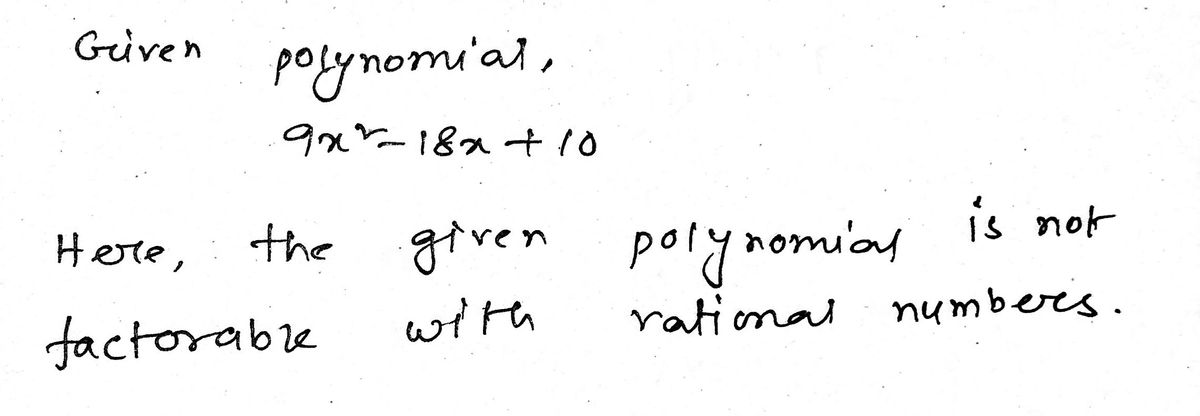 Given polynomial,
9x² - 18x + 10
Here, the given polynomial is not
factorable with rational numbers.